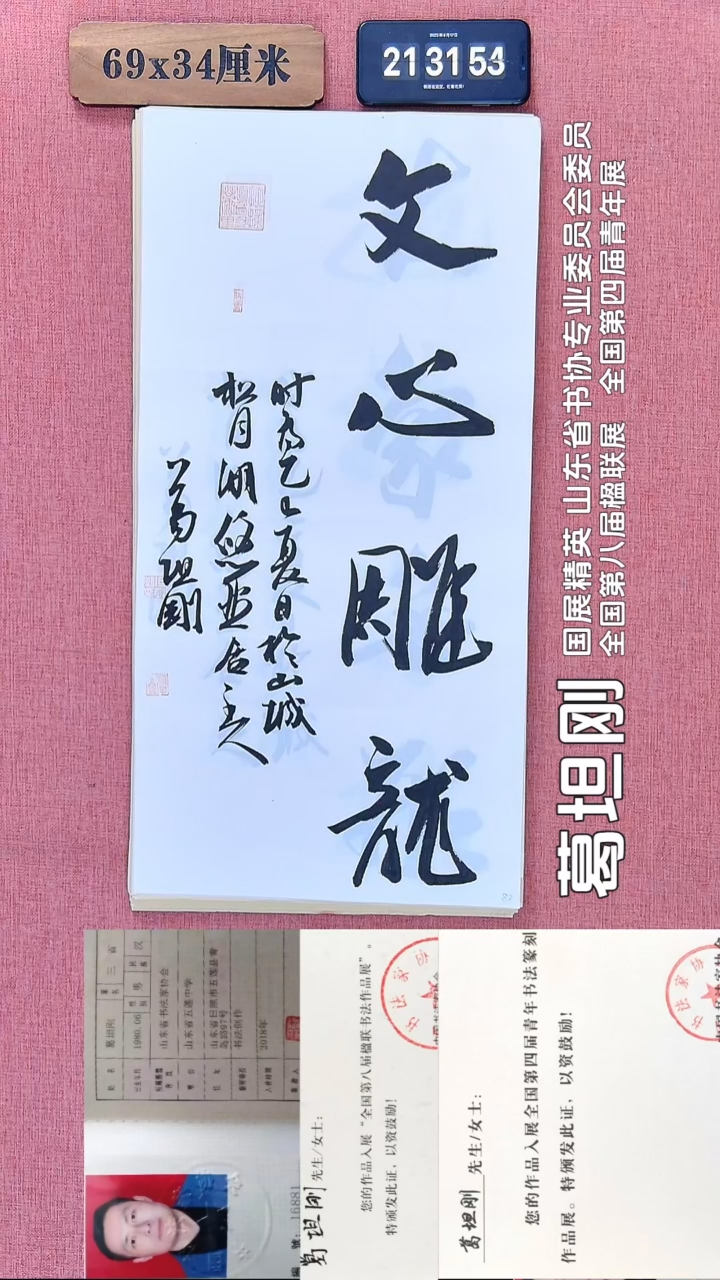 69x34厘米
21 31 54
文心雕龙
时为乙巳夏日於山城
松月湖悠然居主人
葛坦刚
国展精英 山东省书协专业委员会委员
全国第八届楹联展 全国第四届青年展
葛坦刚
葛坦刚
1980.06
男
汉
山东省书法家协会
山东省五莲中学
书法创作
2018年
葛坦刚 先生/女士:
您的作品入展“全国第八届楹联书法作品展”。
特颁发此证，以资鼓励!
葛坦刚 先生/女士:
您的作品入展全国第四届青年书法篆刻
作品展。特颁发此证，以资鼓励!